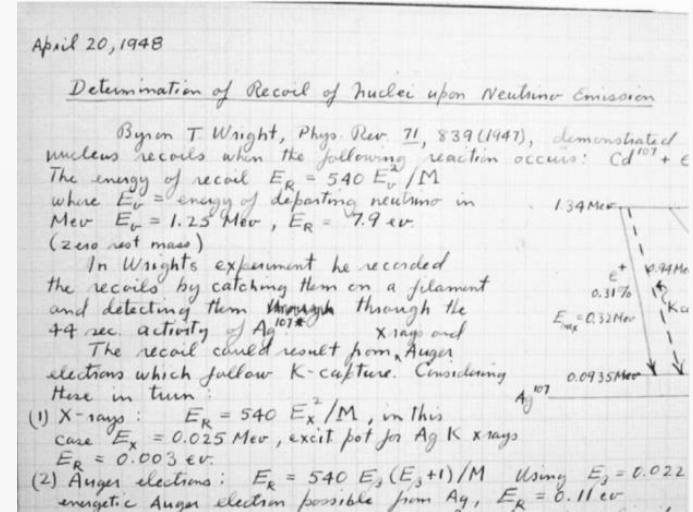 April 20, 1948
Determination of Recoil of Nuclei upon Neutrino Emission
Byron T Wright, Phys. Rev. 71, 839 (1947), demonstrated
nucleus recoils when the following reaction occurs: Cd¹⁰⁷ + e
The energy of recoil E_R = 540 E_ν²/M
where E_ν = energy of departing neutrino in
Mev E_ν = 1.25 Mev, E_R = 7.9 ev.
(zero rest mass)
In Wright's experiment he recorded
the recoils by catching them on a filament
and detecting them through the
44 sec. activity of Ag¹⁰⁷*
The recoil could result from x rays and Auger
electrons which follow K-capture. Considering
these in turn:
(1) X-rays: E_R = 540 E_x²/M, in this
case E_x = 0.025 Mev, excit pot for Ag K x rays
E_R = 0.003 ev.
(2) Auger electrons: E_R = 540 E_3 (E_3+1)/M Using E_3 = 0.022
energetic Auger electron possible from Ag, E_R = 0.11 ev
1.34 Mev
e⁺
0.31%
E_max = 0.32 Mev
0.94 Me
K
0.0935 Mev
Ag¹⁰⁷